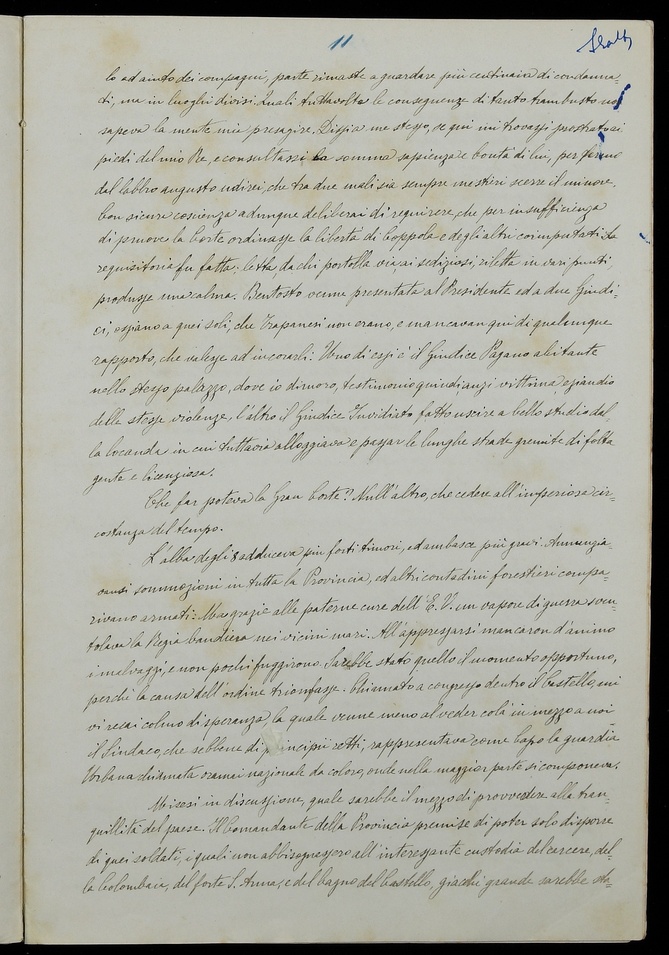 11
lo ed aiuto dei compagni, parte rimaste a guardare più centinaia di condanna=
ti, ma in luoghi divisi. Quali tuttavolta le conseguenze di tanto trambusto no
sapeva la mente mia presagire. Dissi a me stesso, se qui mi trovassi prostrato ai
piedi del mio Re, e consultassi la somma sapienza e bontà di lui, per fermo
dal labbro augusto udirei, che tra due mali sia sempre mestieri scerre il minore.
Con sicura coscienza adunque deliberai di requirere, che per insufficienza
di pruove la Corte ordinasse la libertà di Coppola e degli altri coimputati. La
requisitoria fu fatta: letta da chi portolla via ai sediziosi, riletta in vari punti
produsse una calma. Bentosto venne presentata al Presidente ed a due Giudi=
ci, ossiano a quei soli, che Trapanesi non erano, e mancavan qui di qualunque
rapporto, che valesse ad incorarli: Uno di essi è il Giudice Pagano abitante
nello stesso palazzo, dove io dimoro, testimonio quindi anzi vittima eziandio
delle stesse violenze, l'altro il Giudice Invidiato fatto uscire a bello studio dal
la locanda in cui tuttavia alloggiava e passar le lunghe strade gremite di folta
gente e licenziosa.
Che far poteva la Gran Corte? Null'altro, che cedere all'imperiosa cir=
costanza del tempo.
L'alba degli 8 adduceva più forti timori, ed ambasce più gravi. Annunzia=
vansi sommozioni in tutta la Provincia, ed altri contadini forestieri compa=
rivano armati: Ma grazie alle paterne cure dell'E. V. un vapore di guerra sven=
tolava la Regia bandiera nei vicini mari. All'appressarsi mancaron d'animo
i malvaggi, e non pochi fuggirono. Sarebbe stato quello il momento opportuno,
perchè la causa dell'ordine trionfasse. Chiamato a congresso dentro il Castello, mi
vi recai colmo di speranza, la quale venne meno al veder colà in mezzo a noi
il Sindaco, che sebbene di principii retti, rappresentava come Capo la guardia
Urbana chiamata oramai nazionale da coloro, onde nella maggior parte si componeva.
Misesi in discussione, quale sarebbe il mezzo di provvedere alla tran=
quillità del paese. Il Comandante della Provincia premise di poter solo disporre
di quei soldati, i quali non abbisognassero all'interessante custodia del carcere, del=
la Colombaia, del forte S. Anna, e del bagno del Castello, giacchè grande sarebbe sta=